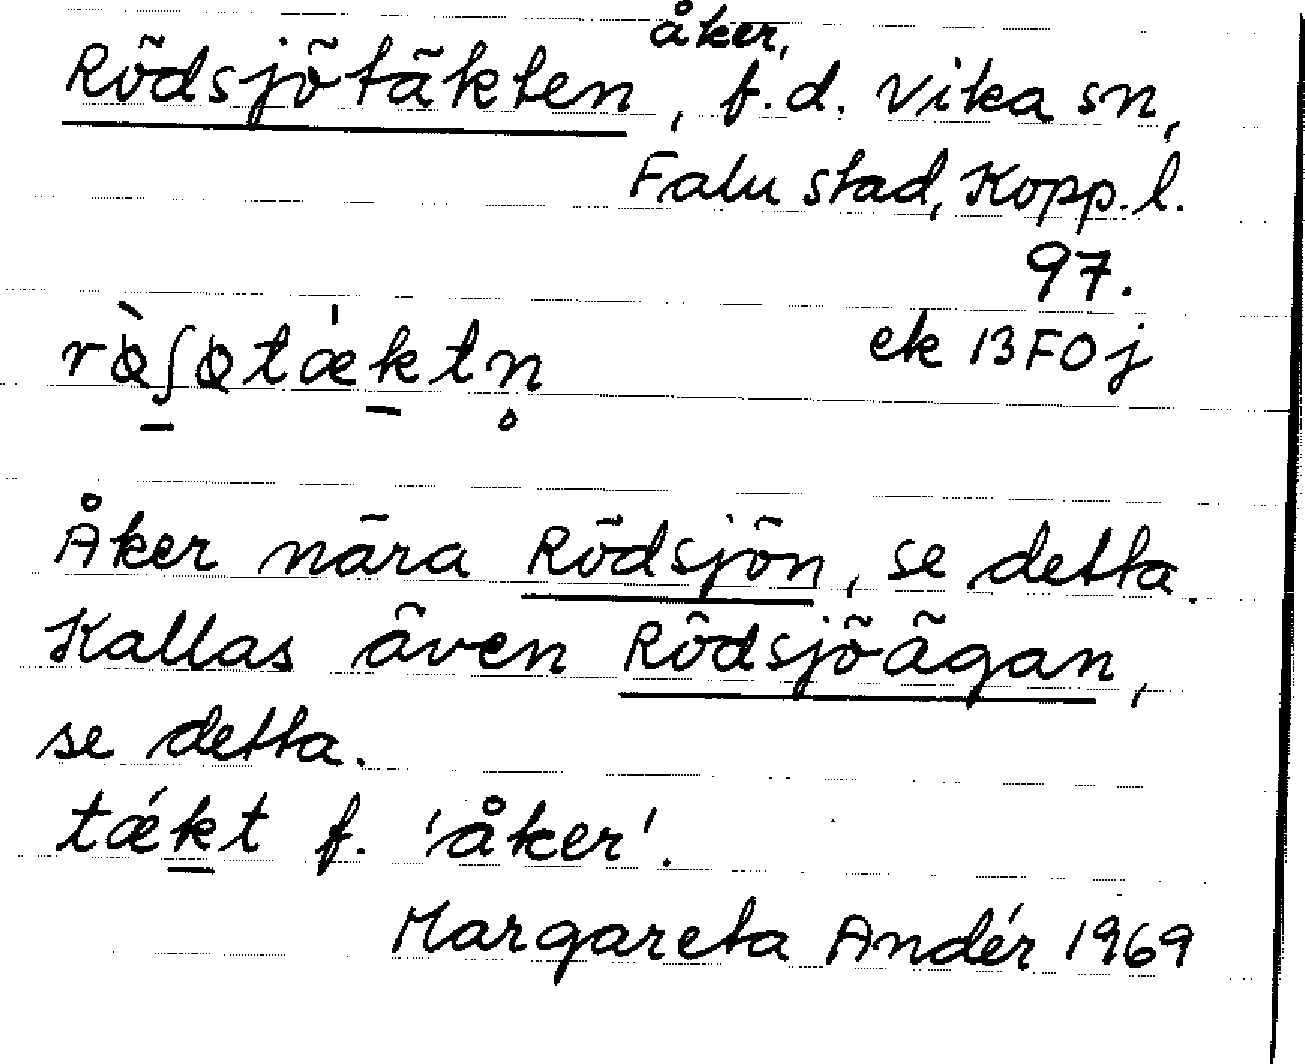 Rödsjötäkten, åker, f.d. Vika sn,
Falu stad, Kopp. l.
97.
ek 13F0j
Åker nära Rödsjön, se detta.
Kallas även Rödsjöägan,
se detta.
tǽkt f. 'åker'.
Margareta Andér 1969